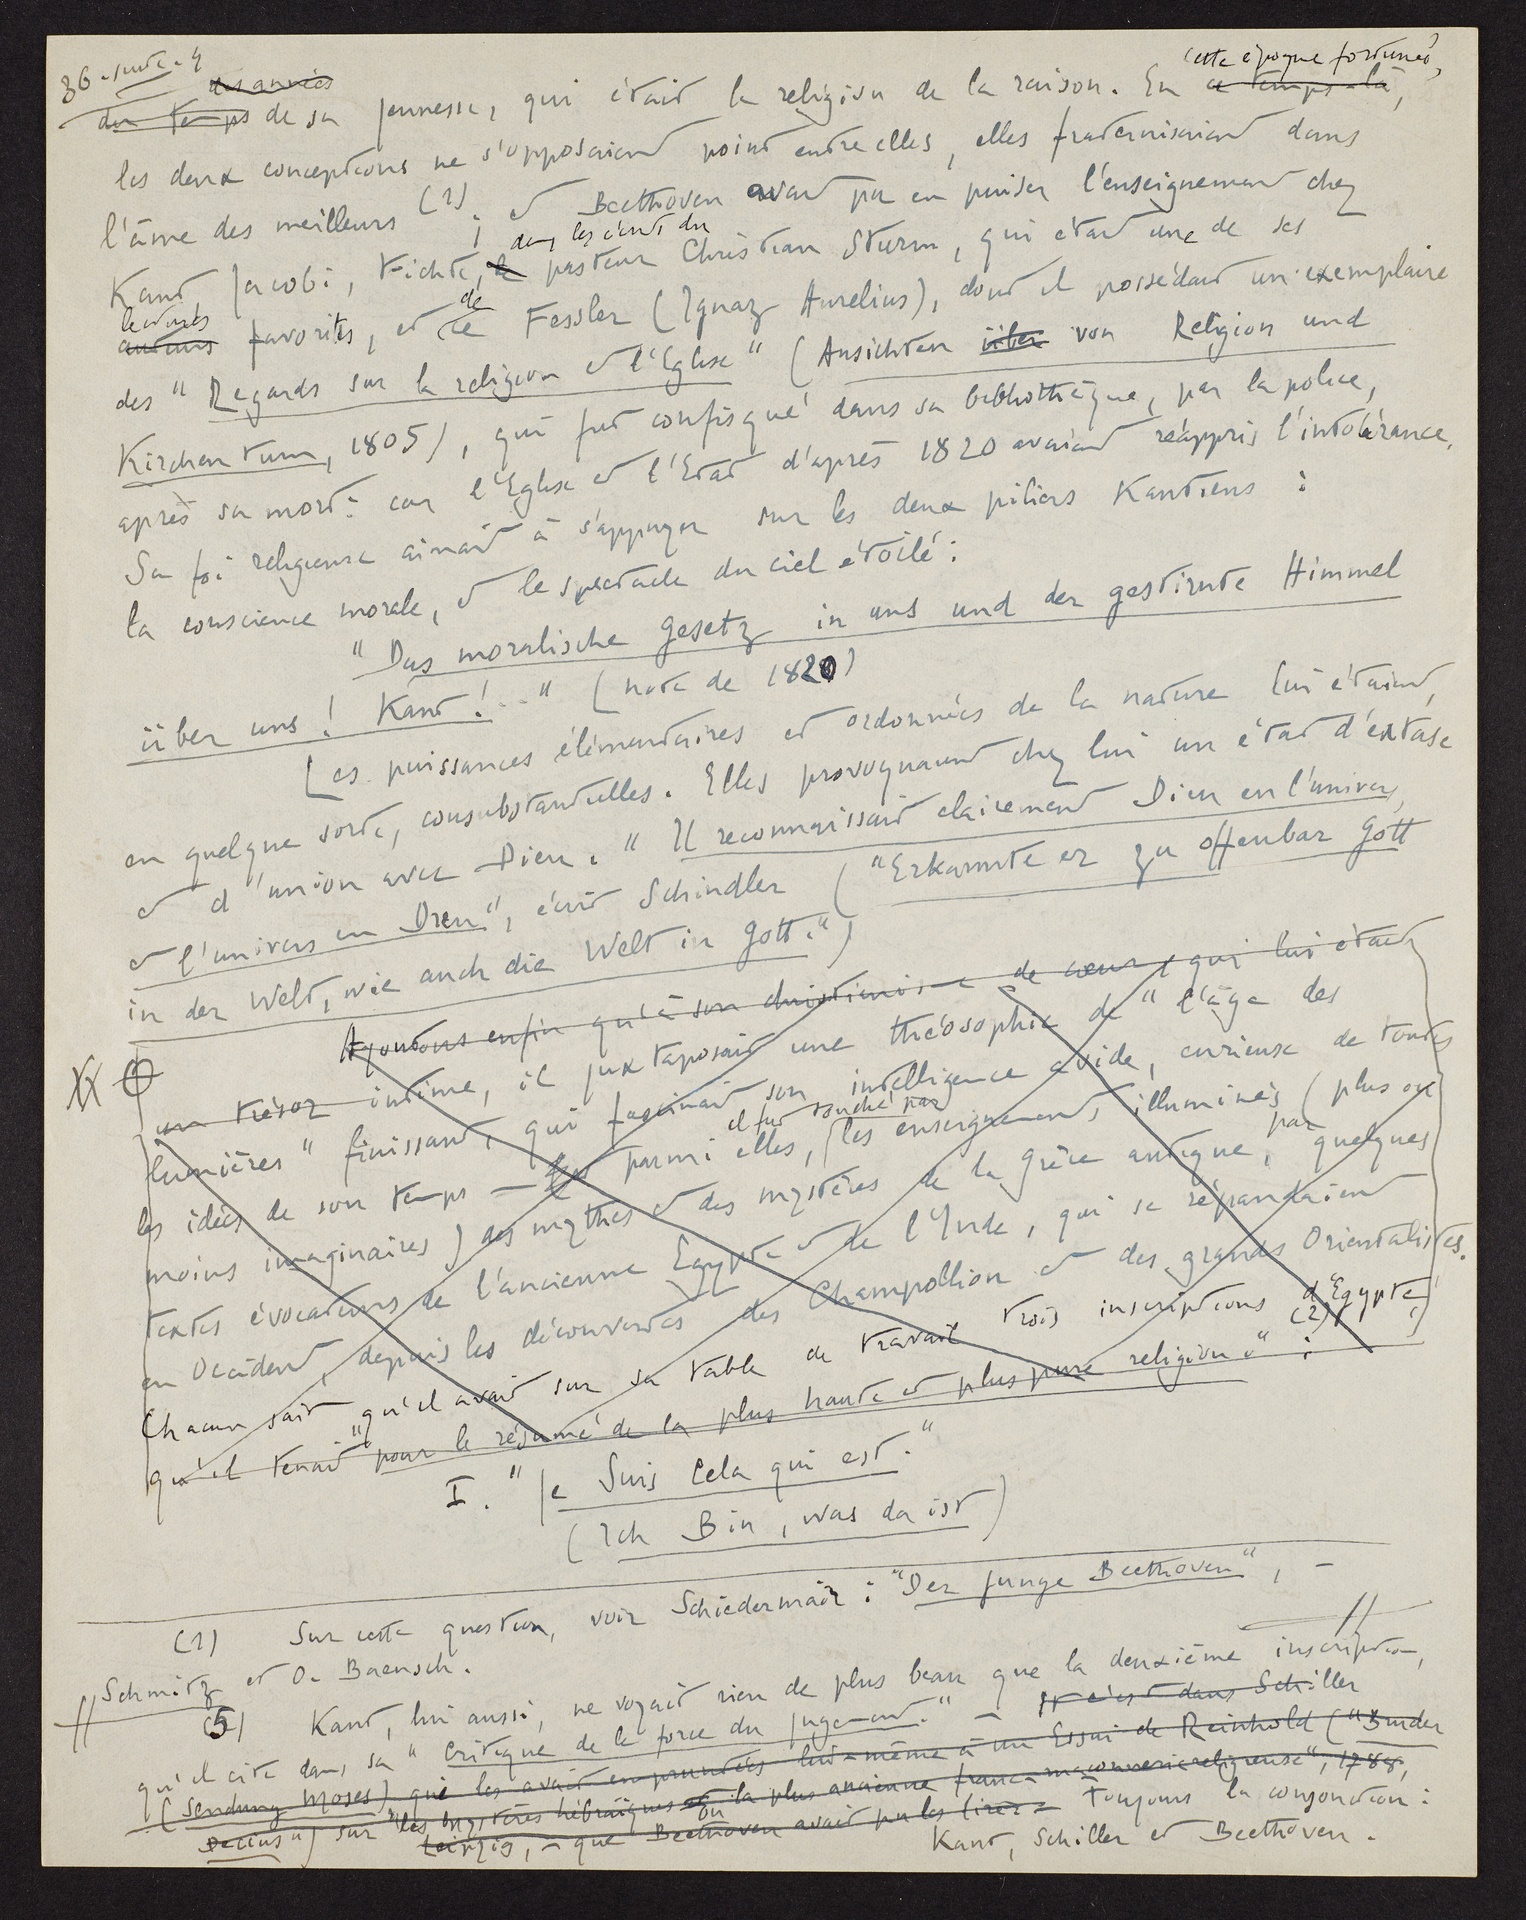 36 - suite - 4
des années cette époque fortunée,
du temps de sa jeunesse, qui était la religion de la raison. En ce temps-là,
les deux conceptions ne s'opposaient point entre elles, elles fraternisaient dans
l'âme des meilleurs (1) ; et Beethoven avait pu en puiser l'enseignement chez
dans les écrits du
Kant, Jacobi, Fichte, le pasteur Christian Sturm, qui était une de ses
lectures de
auteurs favorites, et de Fessler (Ignaz Aurelius), dont il possédait un exemplaire
des "Regards sur la religion et l'Eglise" (Ansichten über von Religion und
Kirchentum, 1805), qui fut confisqué dans sa bibliothèque, par la police,
après sa mort : car l'Eglise et l'Etat d'après 1820 avaient réappris l'intolérance.
Sa foi religieuse aimait à s'appuyer sur les deux piliers Kantiens :
la conscience morale, et le spectacle du ciel étoilé :
"Das moralische Gesetz in uns und der gestirnte Himmel
über uns ! Kant !..." (note de 1820)
Les puissances élémentaires et ordonnées de la nature lui étaient,
en quelque sorte, consubstantielles. Elles provoquaient chez lui un état d'extase
et d'union avec Dieu. "Il reconnaissait clairement Dieu en l'univers,
et l'univers en Dieu", écrit Schindler ("Erkannte er zu offenbar Gott
in der Welt, wie auch die Welt in Gott.")
Ajoutons enfin qu'à son christianisme de cœur, qui lui était
un trésor intime, il juxtaposait une théosophie de "l'âge des
lumières" finissant, qui fascinait son intelligence avide, curieuse de toutes
il fut touché par
les idées de son temps — parmi elles, les enseignements illuminés (plus ou
par
moins imaginaires) des mythes et des mystères de la Grèce antique, quelques
textes évocateurs de l'ancienne Egypte et de l'Inde, qui se répandaient
en Occident, depuis les découvertes des Champollion et des grands Orientalistes.
Chacun sait qu'il avait sur sa table de travail trois inscriptions d'Egypte,
(2)
qu'il tenait "pour le résumé de la plus haute et plus pure religion." :
I. "Je Suis Cela qui est."
(Ich Bin, was da ist)
(1) Sur cette question, voir Schiedermair : "Der junge Beethoven", -
Schmitz et O. Baensch.
(5) Kant, lui aussi, ne voyait rien de plus beau que la deuxième inscription,
qu'il cite dans sa "Critique de la force du jugement." — Et c'est dans Schiller
(Sendung Moses) que les avait empruntées lui-même à un Essai de Reinhold ("Bruder
Decius") sur "les mystères hébraïques ou la plus ancienne franc-maçonnerie religieuse", 1788,
Leipzig, - que Beethoven avait pu les lire. — Toujours la conjonction :
Kant, Schiller et Beethoven.